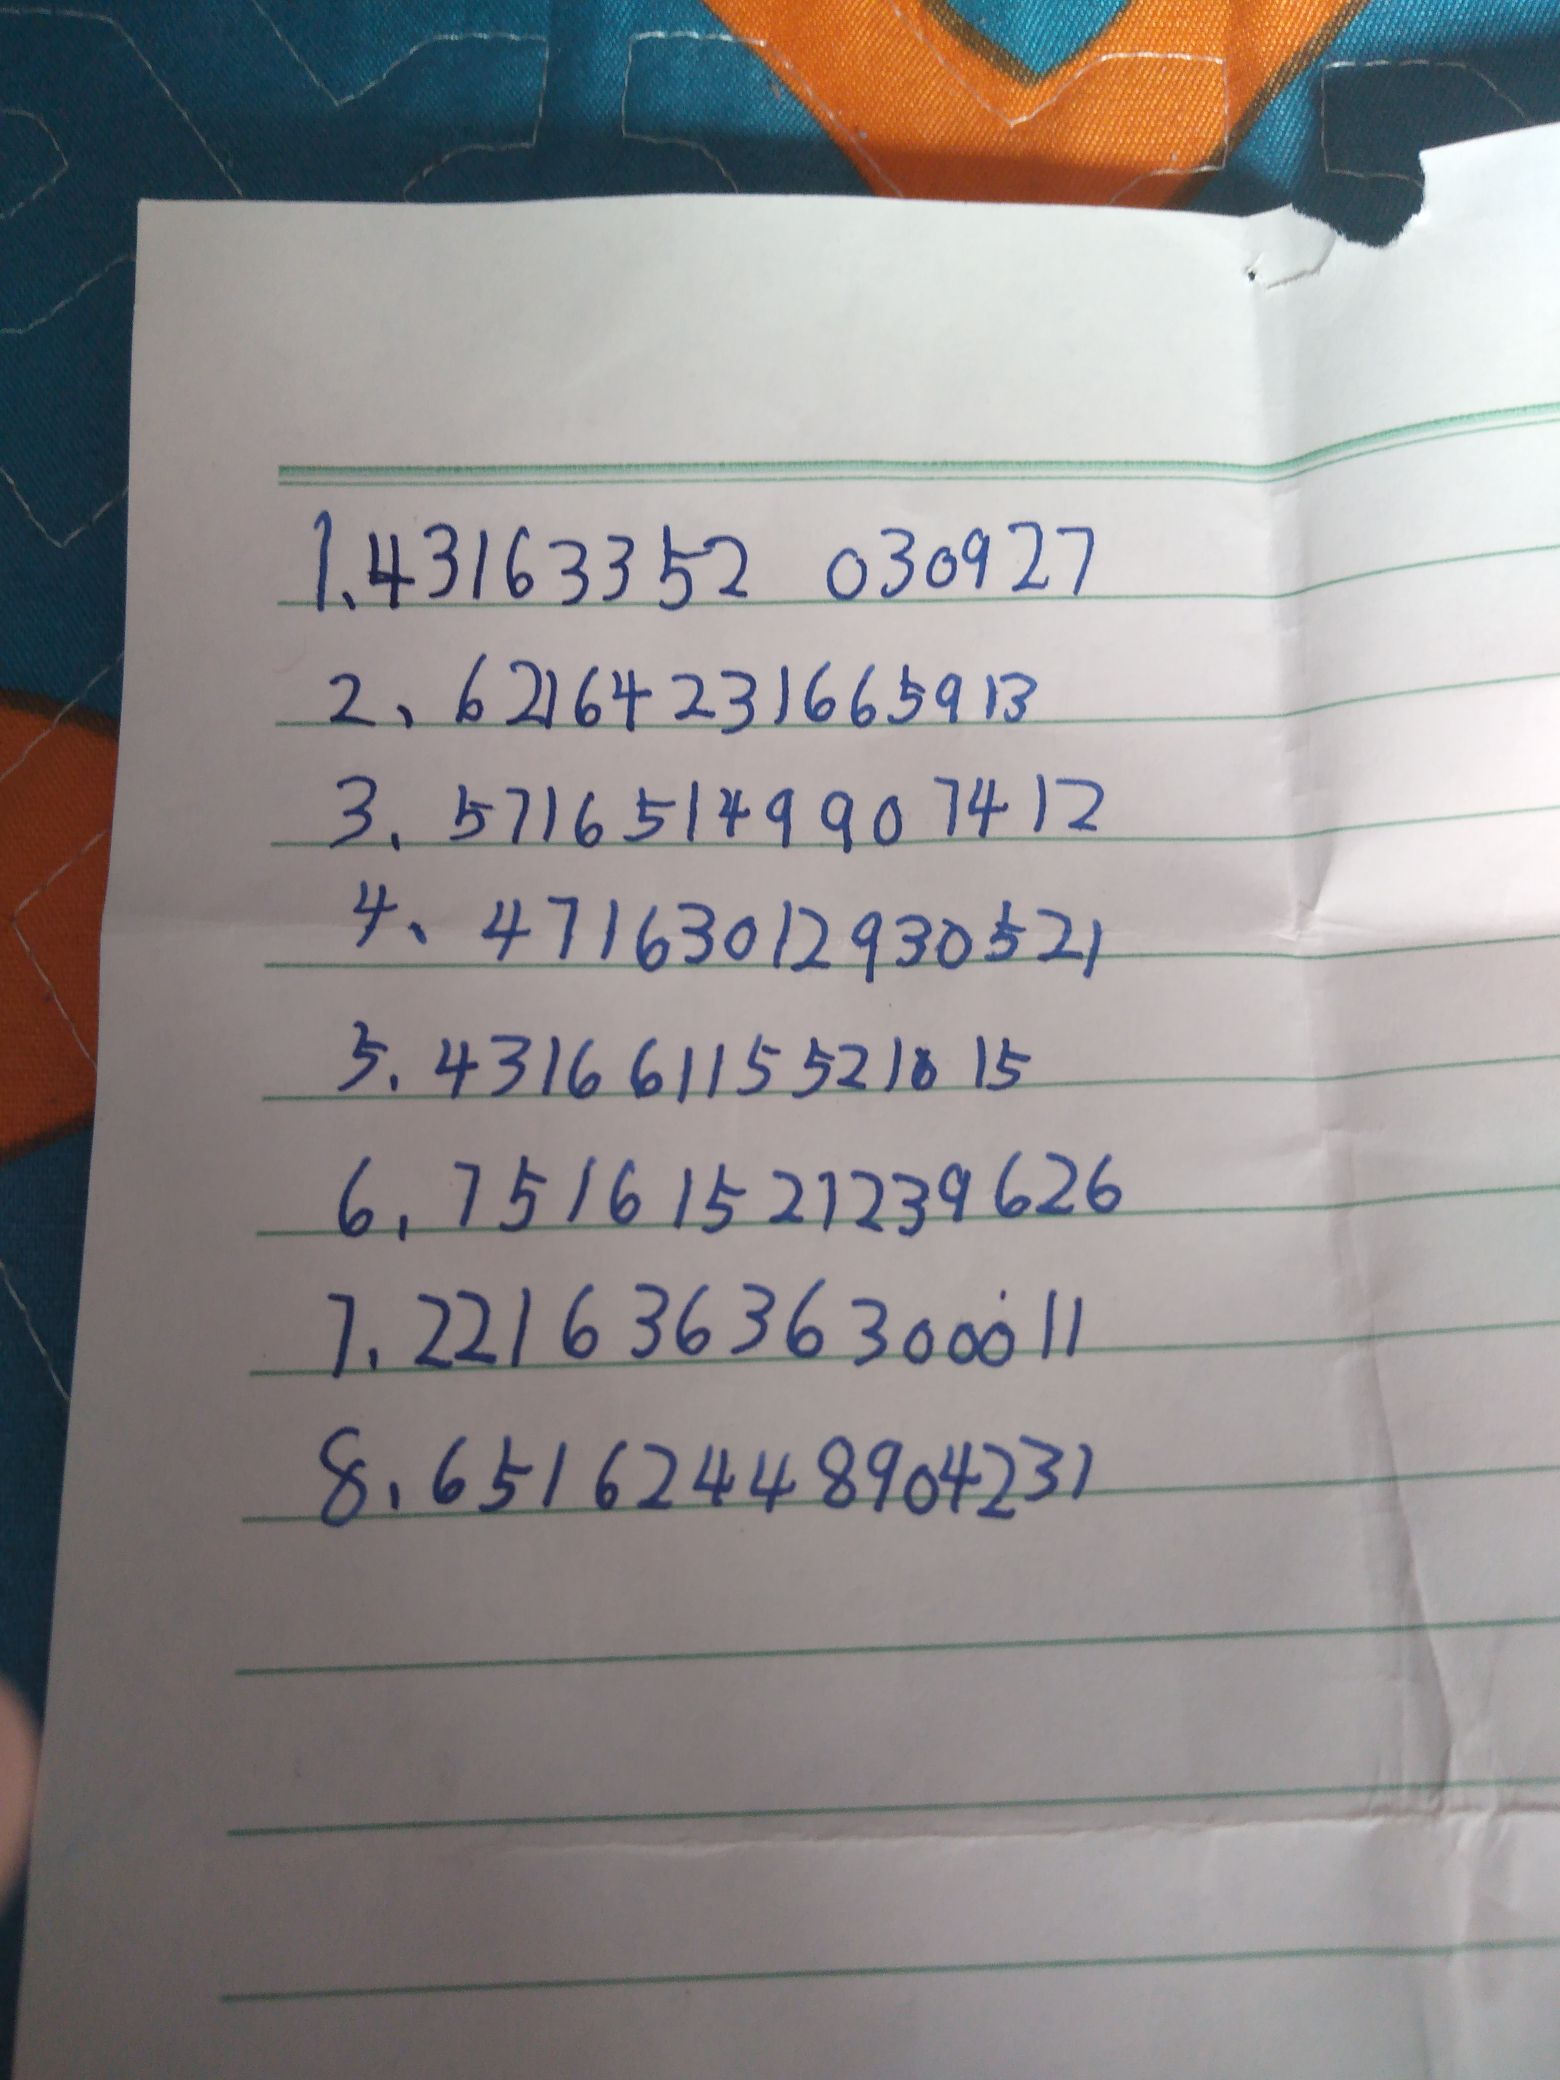 1、43163352 030927
2、62164231665913
3、57165149907412
4、47163012930521
5、43166115521015
6、75161521239626
7、22163636300011
8、65162448904231